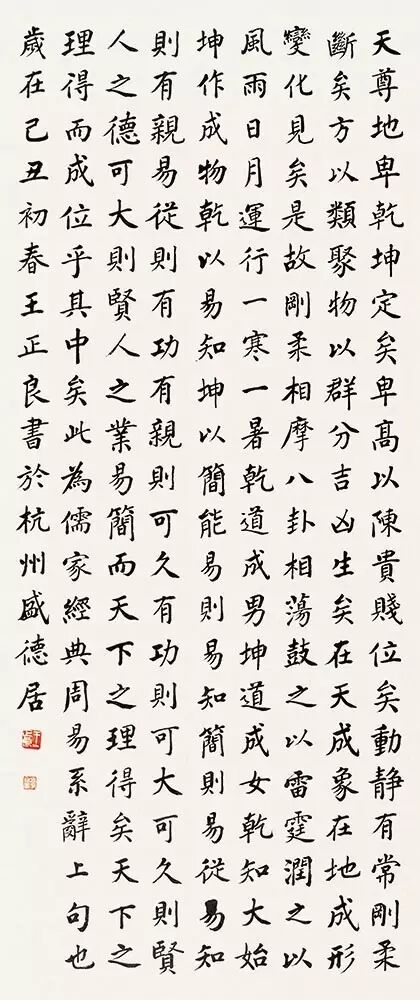 天尊地卑乾坤定矣卑高以陳貴賤位矣動靜有常剛柔
斷矣方以類聚物以群分吉凶生矣在天成象在地成形
變化見矣是故剛柔相摩八卦相蕩鼓之以雷霆潤之以
風雨日月運行一寒一暑乾道成男坤道成女乾知大始
坤作成物乾以易知坤以簡能易則易知簡則易從易知
則有親易從則有功有親則可久有功則可大可久則賢
人之德可大則賢人之業易簡而天下之理得矣天下之
理得而成位乎其中矣此為儒家經典周易系辭上句也
歲在己丑初春王正良書於杭州盛德居